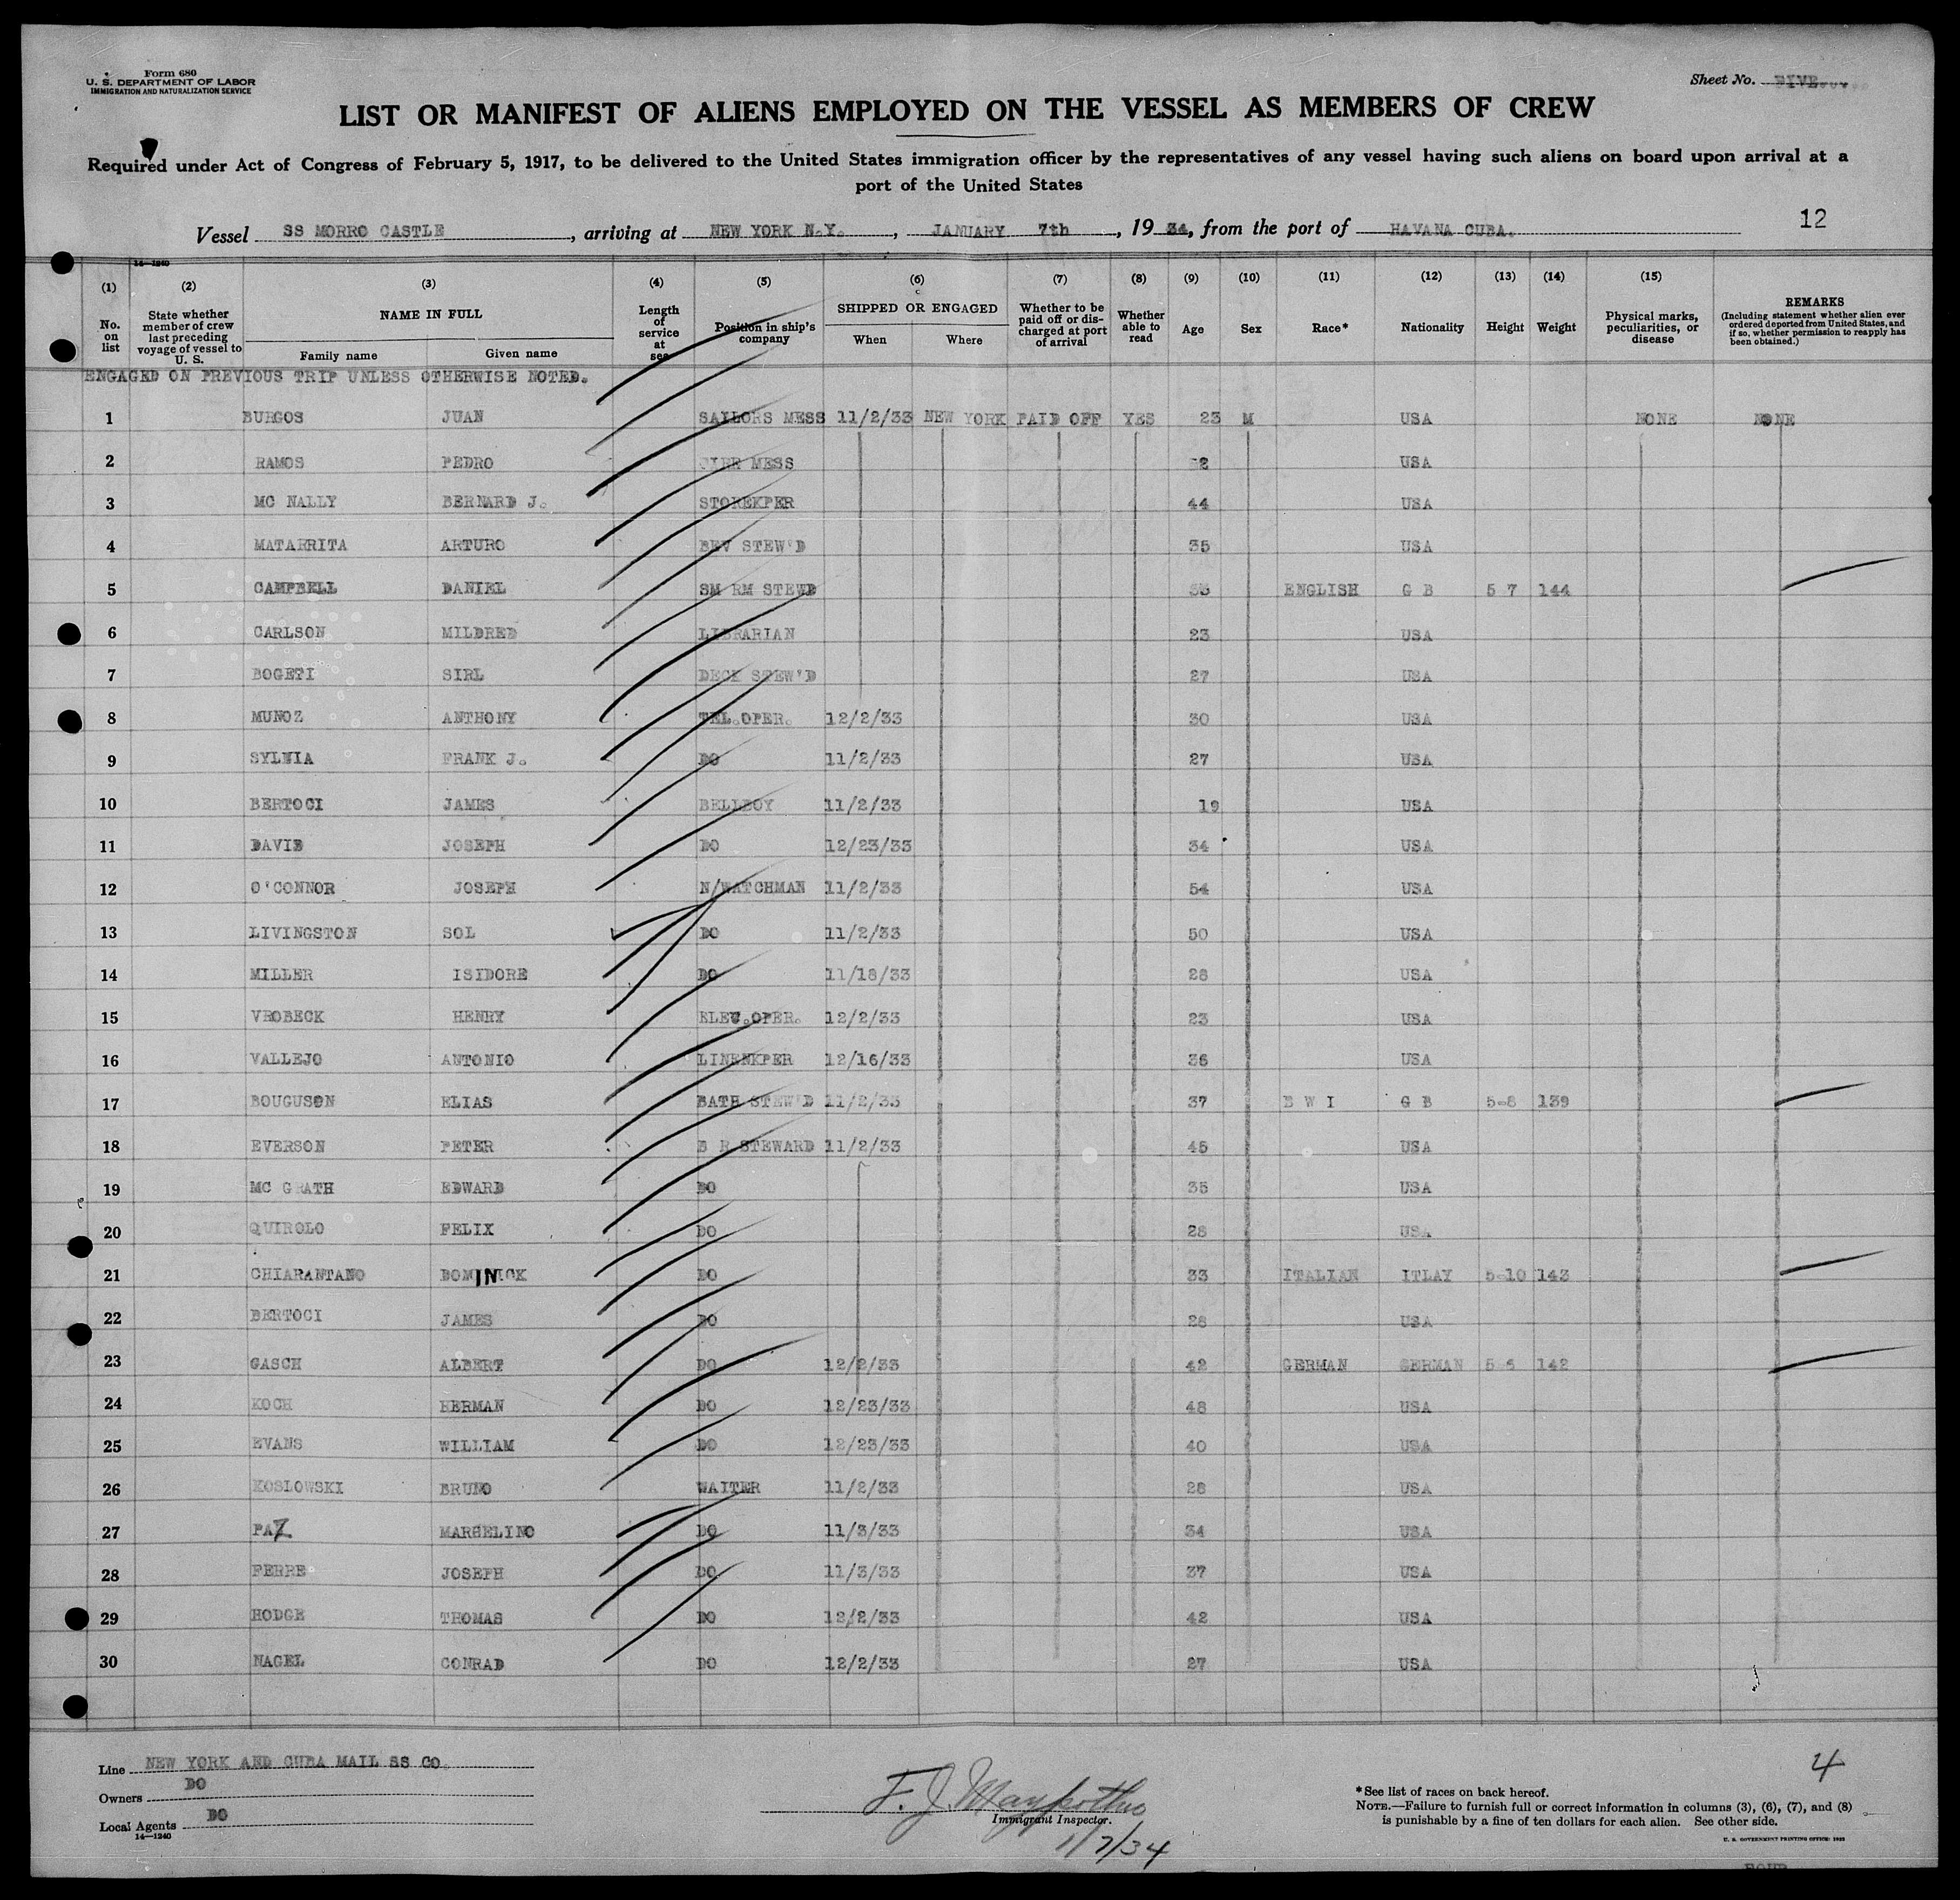 Form 680
U. S. DEPARTMENT OF LABOR
IMMIGRATION AND NATURALIZATION SERVICE
Sheet No. FIVE
LIST OR MANIFEST OF ALIENS EMPLOYED ON THE VESSEL AS MEMBERS OF CREW
Required under Act of Congress of February 5, 1917, to be delivered to the United States immigration officer by the representatives of any vessel having such aliens on board upon arrival at a
port of the United States
12
Vessel SS MORRO CASTLE, arriving at NEW YORK N.Y., JANUARY 7th, 1934, from the port of HAVANA CUBA.
14—1240
(1) No. on list (2) State whether member of crew last preceding voyage of vessel to U. S. (3) NAME IN FULL Family name Given name (4) Length of service at sea (5) Position in ship's company (6) SHIPPED OR ENGAGED When Where (7) Whether to be paid off or discharged at port of arrival (8) Whether able to read (9) Age (10) Sex (11) Race* (12) Nationality (13) Height (14) Weight (15) Physical marks, peculiarities, or disease REMARKS (Including statement whether alien ever ordered deported from United States, and if so, whether permission to reapply has been obtained.)
ENGAGED ON PREVIOUS TRIP UNLESS OTHERWISE NOTED.
1 BURGOS JUAN SAILORS MESS 11/2/33 NEW YORK PAID OFF YES 23 M USA NONE NONE
2 RAMOS PEDRO MESS USA
3 MC NALLY BERNARD J. STOREKPER 44 USA
4 MATARRITA ARTURO BEV STEW'D 35 USA
5 CAMPBELL DANIEL SM RM STEWD ENGLISH G B 5 7 144
6 CARLSON MILDRED LIBRARIAN 23 USA
7 BOGETI SIRL DECK STEW'D 27 USA
8 MUNOZ ANTHONY TEL.OPER. 12/2/33 30 USA
9 SYLWIA FRANK J. DO 11/2/33 27 USA
10 BERTOCI JAMES BELLBOY 11/2/33 19 USA
11 DAVID JOSEPH DO 12/23/33 34 USA
12 O'CONNOR JOSEPH N/WATCHMAN 11/2/33 54 USA
13 LIVINGSTON SOL DO 11/2/33 50 USA
14 MILLER ISIDORE DO 11/18/33 28 USA
15 VROBECK HENRY ELEV.OPER. 12/2/33 23 USA
16 VALLEJO ANTONIO LINENKPER 12/16/33 36 USA
17 BOUGUSON ELIAS BATH STEW'D 11/2/33 37 B W I G B 5-8 139
18 EVERSON PETER B R STEWARD 11/2/33 45 USA
19 MC GRATH EDWARD DO 35 USA
20 QUIROLO FELIX DO 28 USA
21 CHIARANTANO DOMINICK DO 33 ITALIAN ITLAY 5-10 143
22 BERTOCI JAMES DO 28 USA
23 GASCH ALBERT DO 12/2/33 42 GERMAN GERMAN 5-6 142
24 KOCH HERMAN DO 12/23/33 48 USA
25 EVANS WILLIAM DO 12/23/33 40 USA
26 KOSLOWSKI BRUNO WAITER 11/2/33 28 USA
27 PAZ MARSELINO DO 11/3/33 34 USA
28 FERRE JOSEPH DO 11/3/33 37 USA
29 HODGE THOMAS DO 12/2/33 42 USA
30 NAGEL CONRAD DO 12/2/33 27 USA
Line NEW YORK AND CUBA MAIL SS CO.
Owners DO
Local Agents DO
14—1240
F. J.
Immigrant Inspector.
1/7/34
4
*See list of races on back hereof.
NOTE.—Failure to furnish full or correct information in columns (3), (6), (7), and (8)
is punishable by a fine of ten dollars for each alien. See other side.
U. S. GOVERNMENT PRINTING OFFICE: 1933
FOUR